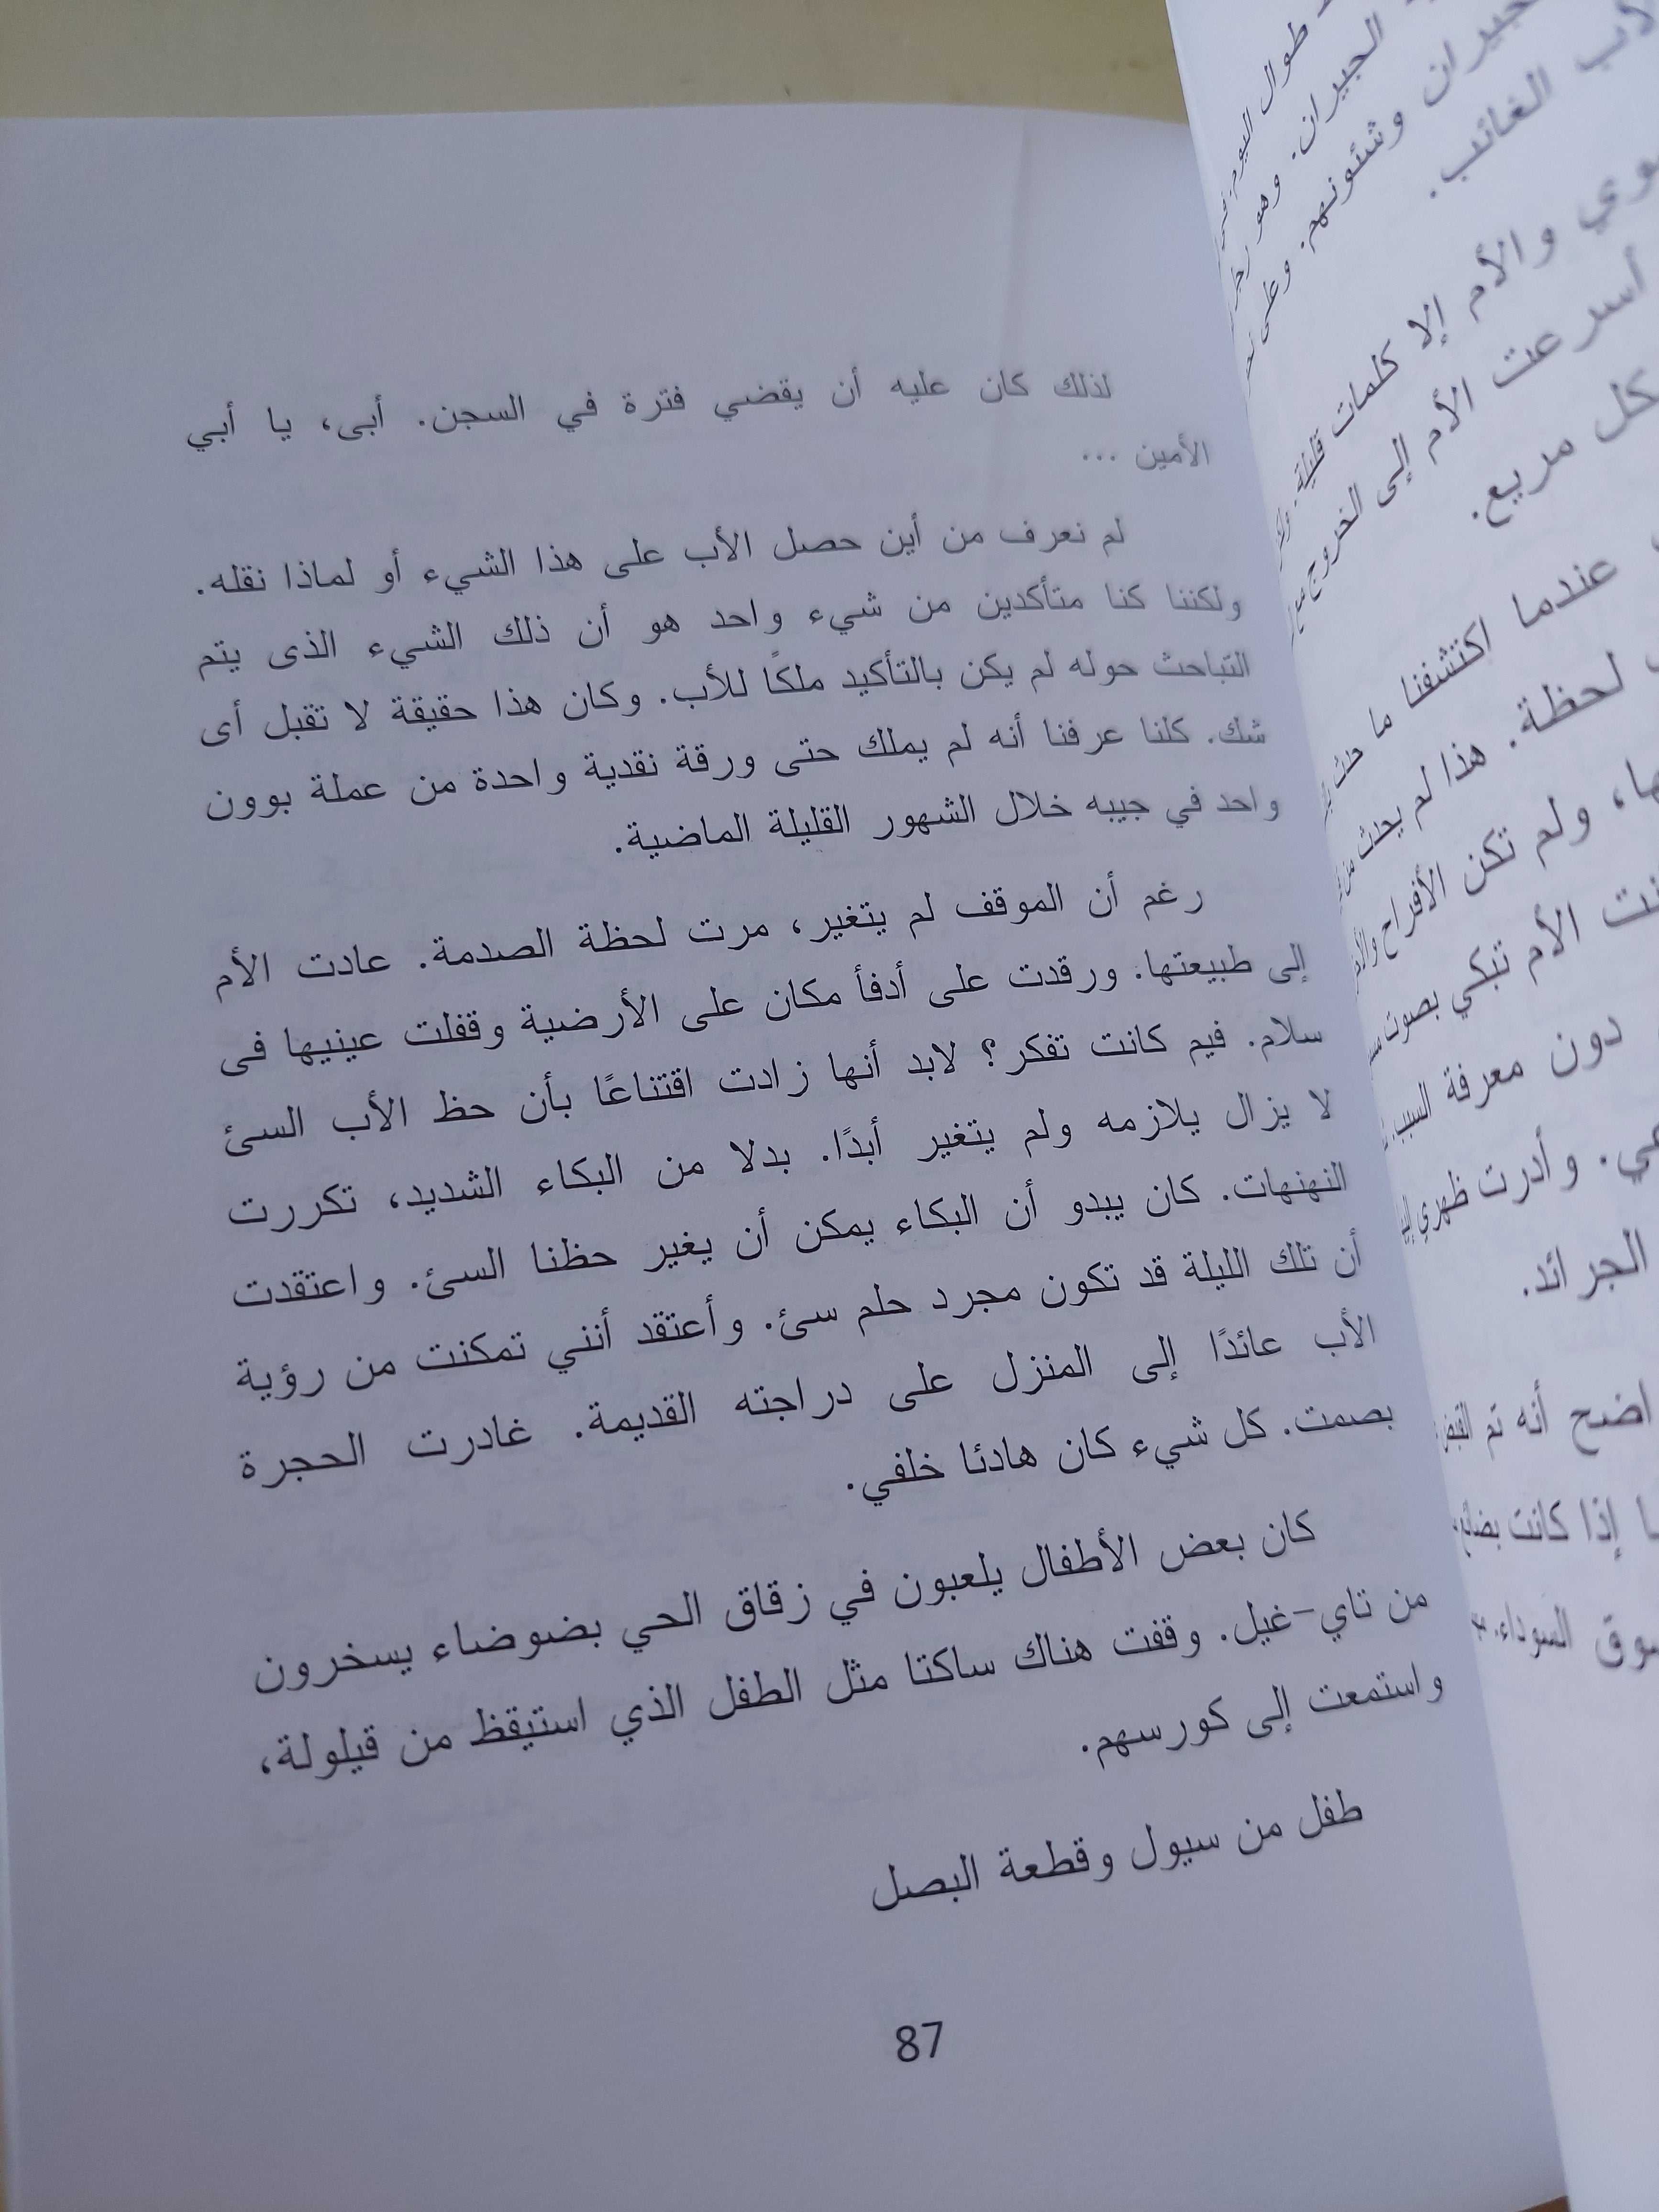 لذلك كان عليه أن يقضي فترة في السجن. أبى، يا أبي
الأمين ...
لم نعرف من أين حصل الأب على هذا الشيء أو لماذا نقله.
ولكننا كنا متأكدين من شيء واحد هو أن ذلك الشيء الذى يتم
التباحث حوله لم يكن بالتأكيد ملكًا للأب. وكان هذا حقيقة لا تقبل أى
شك. كلنا عرفنا أنه لم يملك حتى ورقة نقدية واحدة من عملة بوون
واحد في جيبه خلال الشهور القليلة الماضية.
رغم أن الموقف لم يتغير، مرت لحظة الصدمة. عادت الأم
إلى طبيعتها. ورقدت على أدفأ مكان على الأرضية وقفلت عينيها فى
سلام. فيم كانت تفكر؟ لابد أنها زادت اقتناعًا بأن حظ الأب السئ
لا يزال يلازمه ولم يتغير أبدًا. بدلا من البكاء الشديد، تكررت
النهنهات. كان يبدو أن البكاء يمكن أن يغير حظنا السئ. واعتقدت
أن تلك الليلة قد تكون مجرد حلم سئ. وأعتقد أنني تمكنت من رؤية
الأب عائدًا إلى المنزل على دراجته القديمة. غادرت الحجرة
بصمت. كل شيء كان هادئا خلفي.
كان بعض الأطفال يلعبون في زقاق الحي بضوضاء يسخرون
من تاي-غيل. وقفت هناك ساكتا مثل الطفل الذي استيقظ من قيلولة،
واستمعت إلى كورسهم.
طفل من سيول وقطعة البصل
87
طوال اليوم
الجيران. وهو
جيران وشئونهم. وعلى
الأب الغائب.
والأم إلا كلمات قليلة.
أسرعت الأم إلى الخروج
كل مريع.
عندما اكتشفنا ما حدث
لحظة. هذا لم يحدث من
ها، ولم تكن الأفراح
الأم تبكي بصوت
دون معرفة السبب.
وأدرت ظهري
الجرائد.
أنه تم القبض
إذا كانت
السوداء.